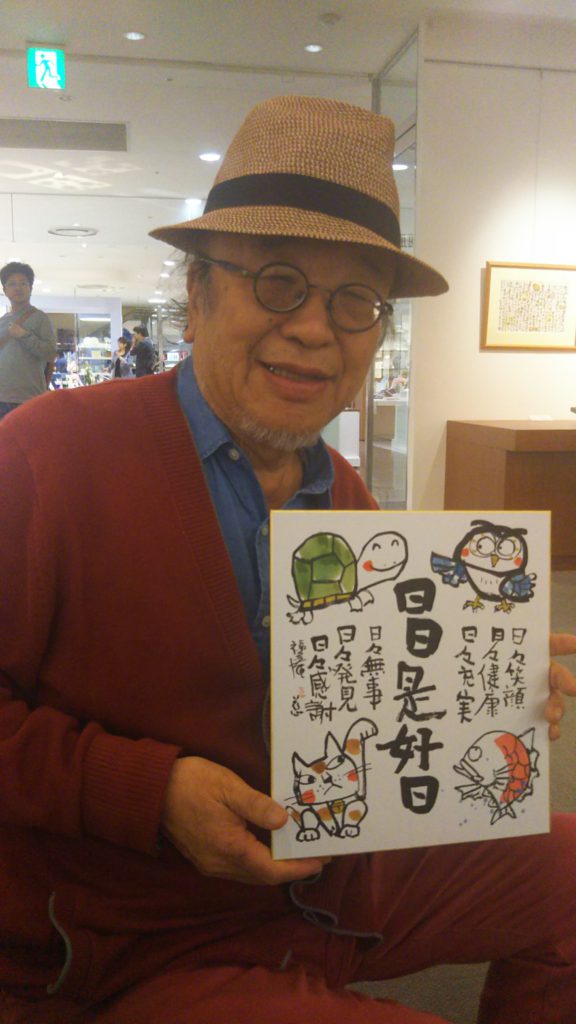 日日是好日
日々笑顔
日々健康
日々充実
日々無事
日々発見
日々感謝